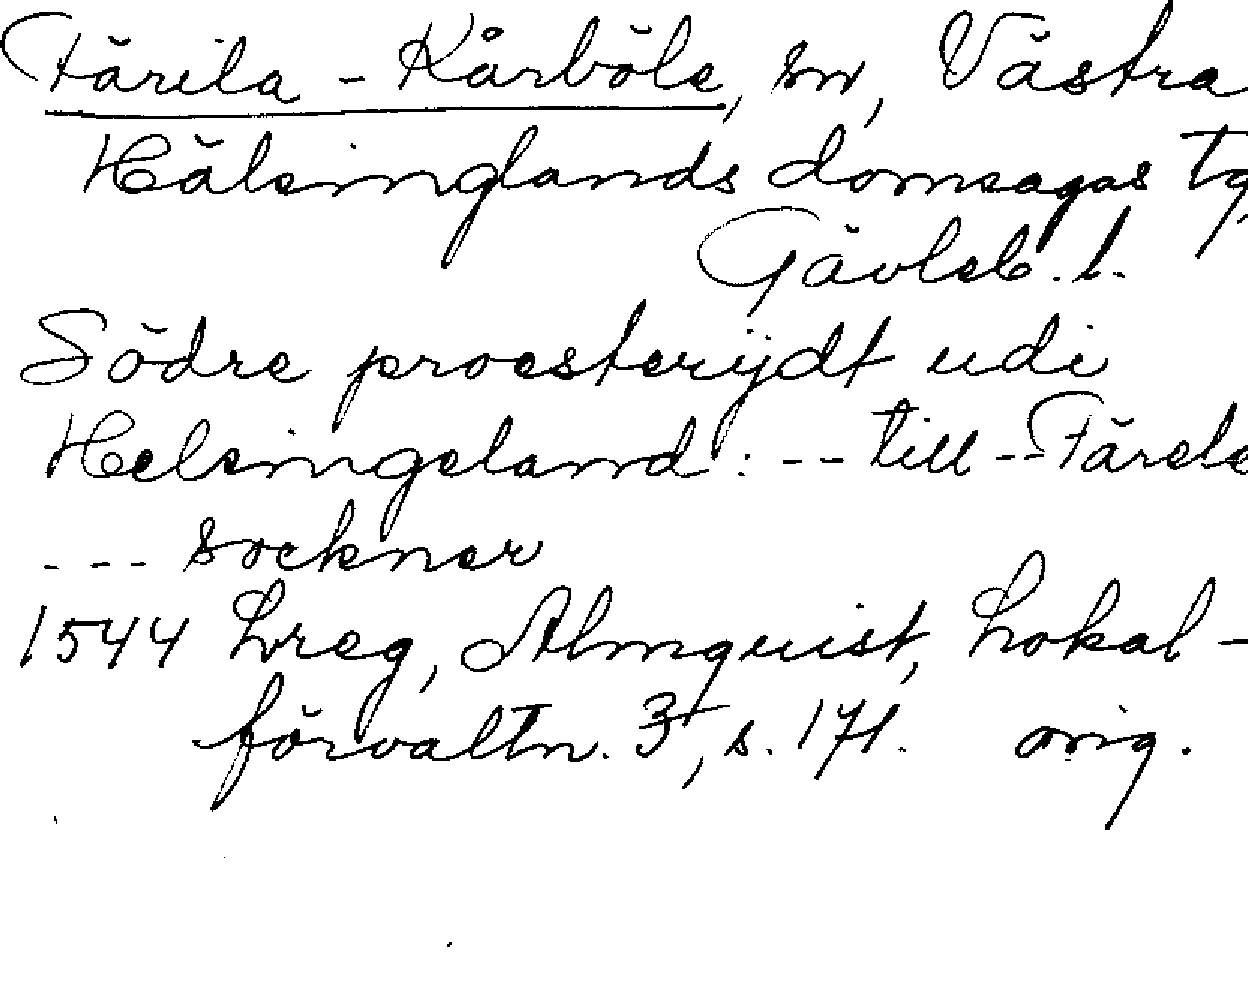 Färila - Kårböle, sn, Västra
Hälsinglands domsagas tg,
Gävleb. l.
Södre proesterijdt udi
Helsingeland: -- till -- Färele
--- socknar
1544 Lreg, Almquist, Lokal-
förvaltn. 3, s. 171. orig.